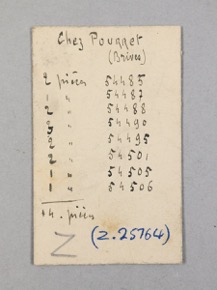 Chez Pouget
(Brives)
2 pièces 54485
1 " 54487
2 " 54488
3 " 54490
2 " 54495
2 " 54501
1 " 54505
1 " 54506
14. pièces
Z (Z.25764)